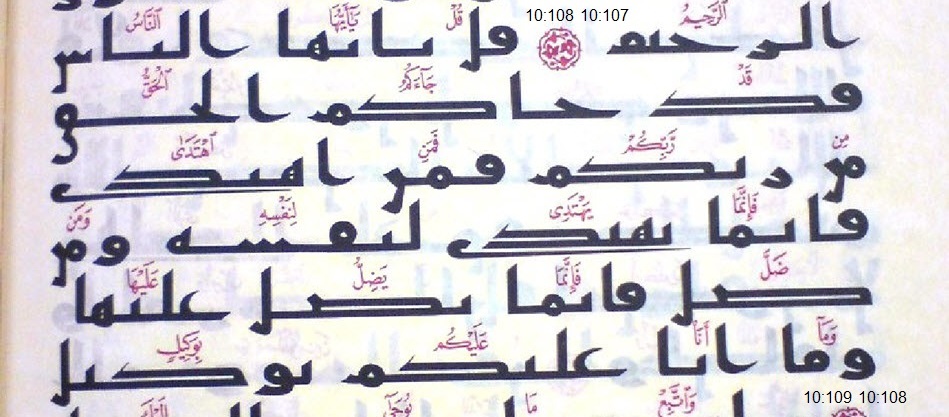 10:108 10:107
الرَّحِيمُ قُلْ يَٰٓأَيُّهَا ٱلنَّاسُ
الرحىم قل ىاىها الىاس
قَدْ جَآءَكُمُ ٱلْحَقُّ
فد حاكم الحق
مِن رَّبِّكُمْ فَمَنِ ٱهْتَدَىٰ
مں ربكم فمں اهىدى
فَإِنَّمَا يَهْتَدِى لِنَفْسِهِۦ وَمَن
فاىما ىهىدى لىفسه ومں
ضَلَّ فَإِنَّمَا يَضِلُّ عَلَيْهَا
صل فاىما ىصل علىها
وَمَآ أَنَا۠ عَلَيْكُم بِوَكِيلٍ
وما اىا علىكم ىوكىل
10:109 10:108
وَٱتَّبِعْ مَا يُوحَىٰٓ إِلَيْكَ